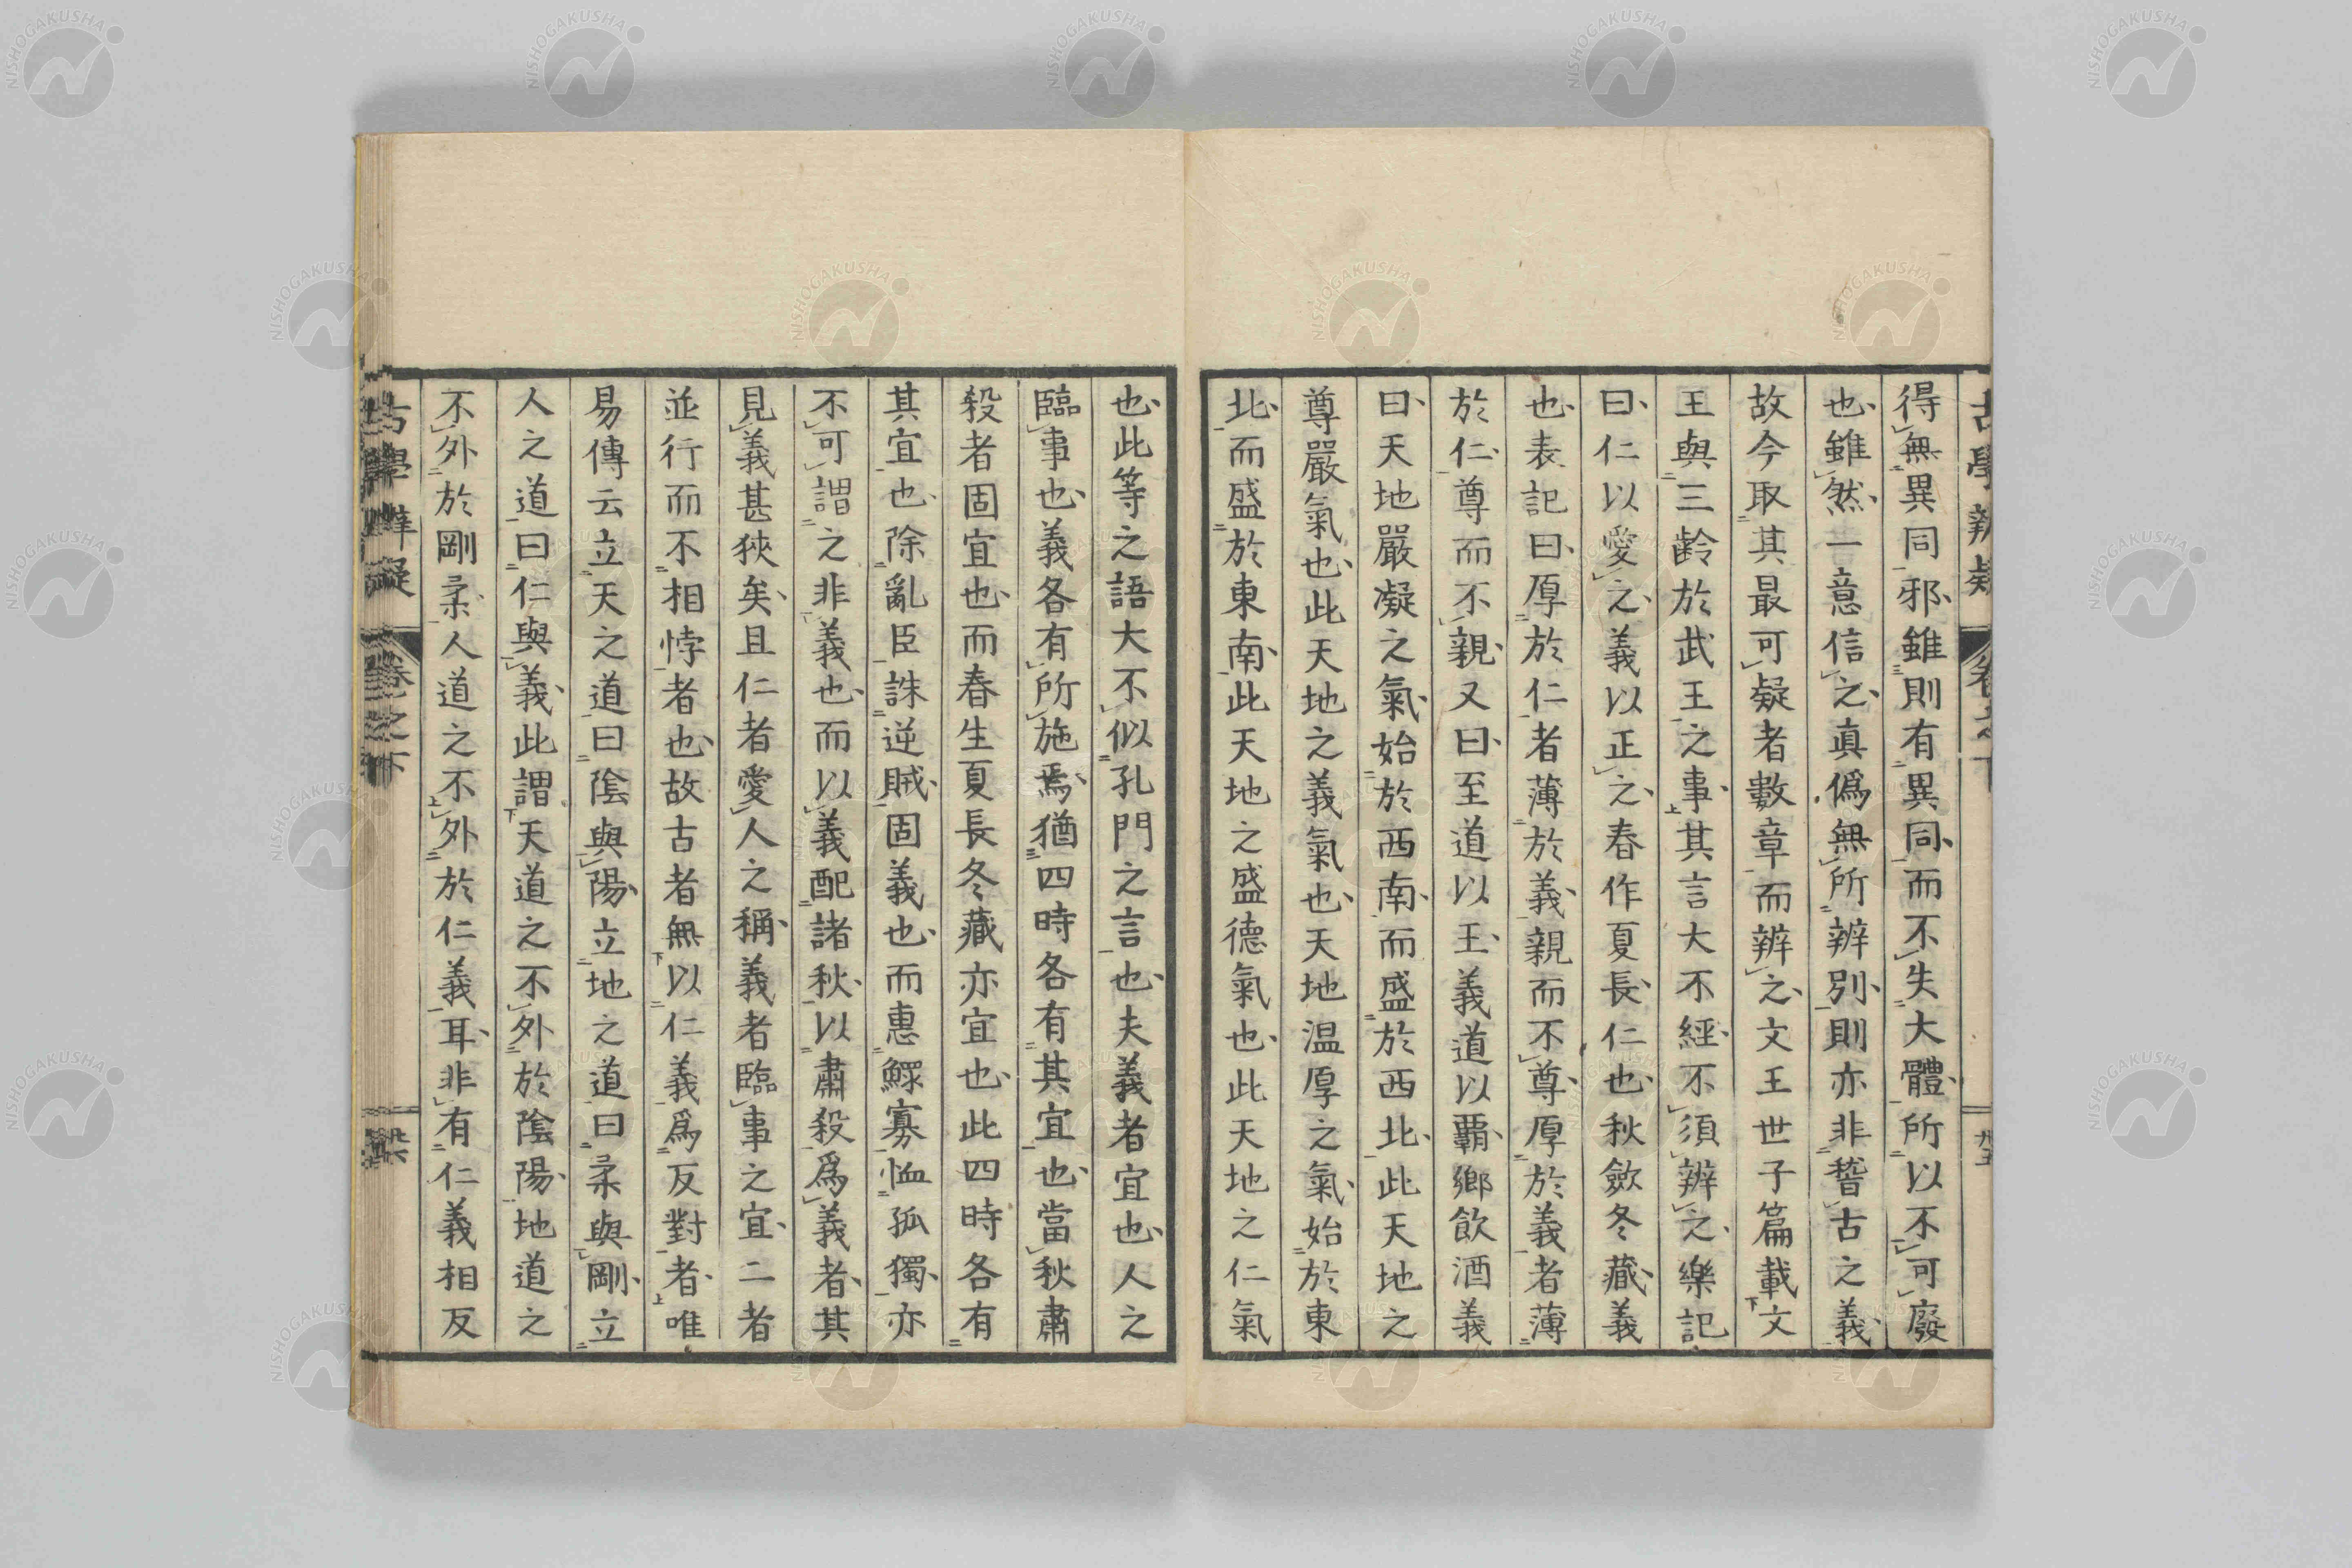 得無異同邪雖則有異同而不失大體所以不可廢
也雖然一意信之眞僞無所辨別則亦非稽古之義
故今取其最可疑者數章而辨之文王世子篇載文
王與三齡於武王之事其言大不經不須辨之樂記
曰仁以愛之義以正之春作夏長仁也秋斂冬藏義
也表記曰厚於仁者薄於義親而不尊厚於義者薄
於仁尊而不親又曰至道以王義道以覇鄉飲酒義
曰天地嚴凝之氣始於西南而盛於西北此天地之
尊嚴氣也此天地之義氣也天地温厚之氣始於東
北而盛於東南此天地之盛德氣也此天地之仁氣
也此等之語大不似孔門之言也夫義者宜也人之
臨事也義各有所施焉猶四時各有其宜也當秋肅
殺者固宜也而春生夏長冬藏亦宜也此四時各有
其宜也除亂臣誅逆賊固義也而惠鰥寡恤孤獨亦
不可謂之非義也而以義配諸秋以肅殺爲義者其
見義甚狹矣且仁者愛人之稱義者臨事之宜二者
並行而不相悖者也故古者無以仁義爲反對者唯
易傳云立天之道曰陰與陽立地之道曰柔與剛立
人之道曰仁與義此謂天道之不外於陰陽地道之
不外於剛柔人道之不外於仁義耳非有仁義相反
古學辨疑
卷之下
NISHOGAKUSHA